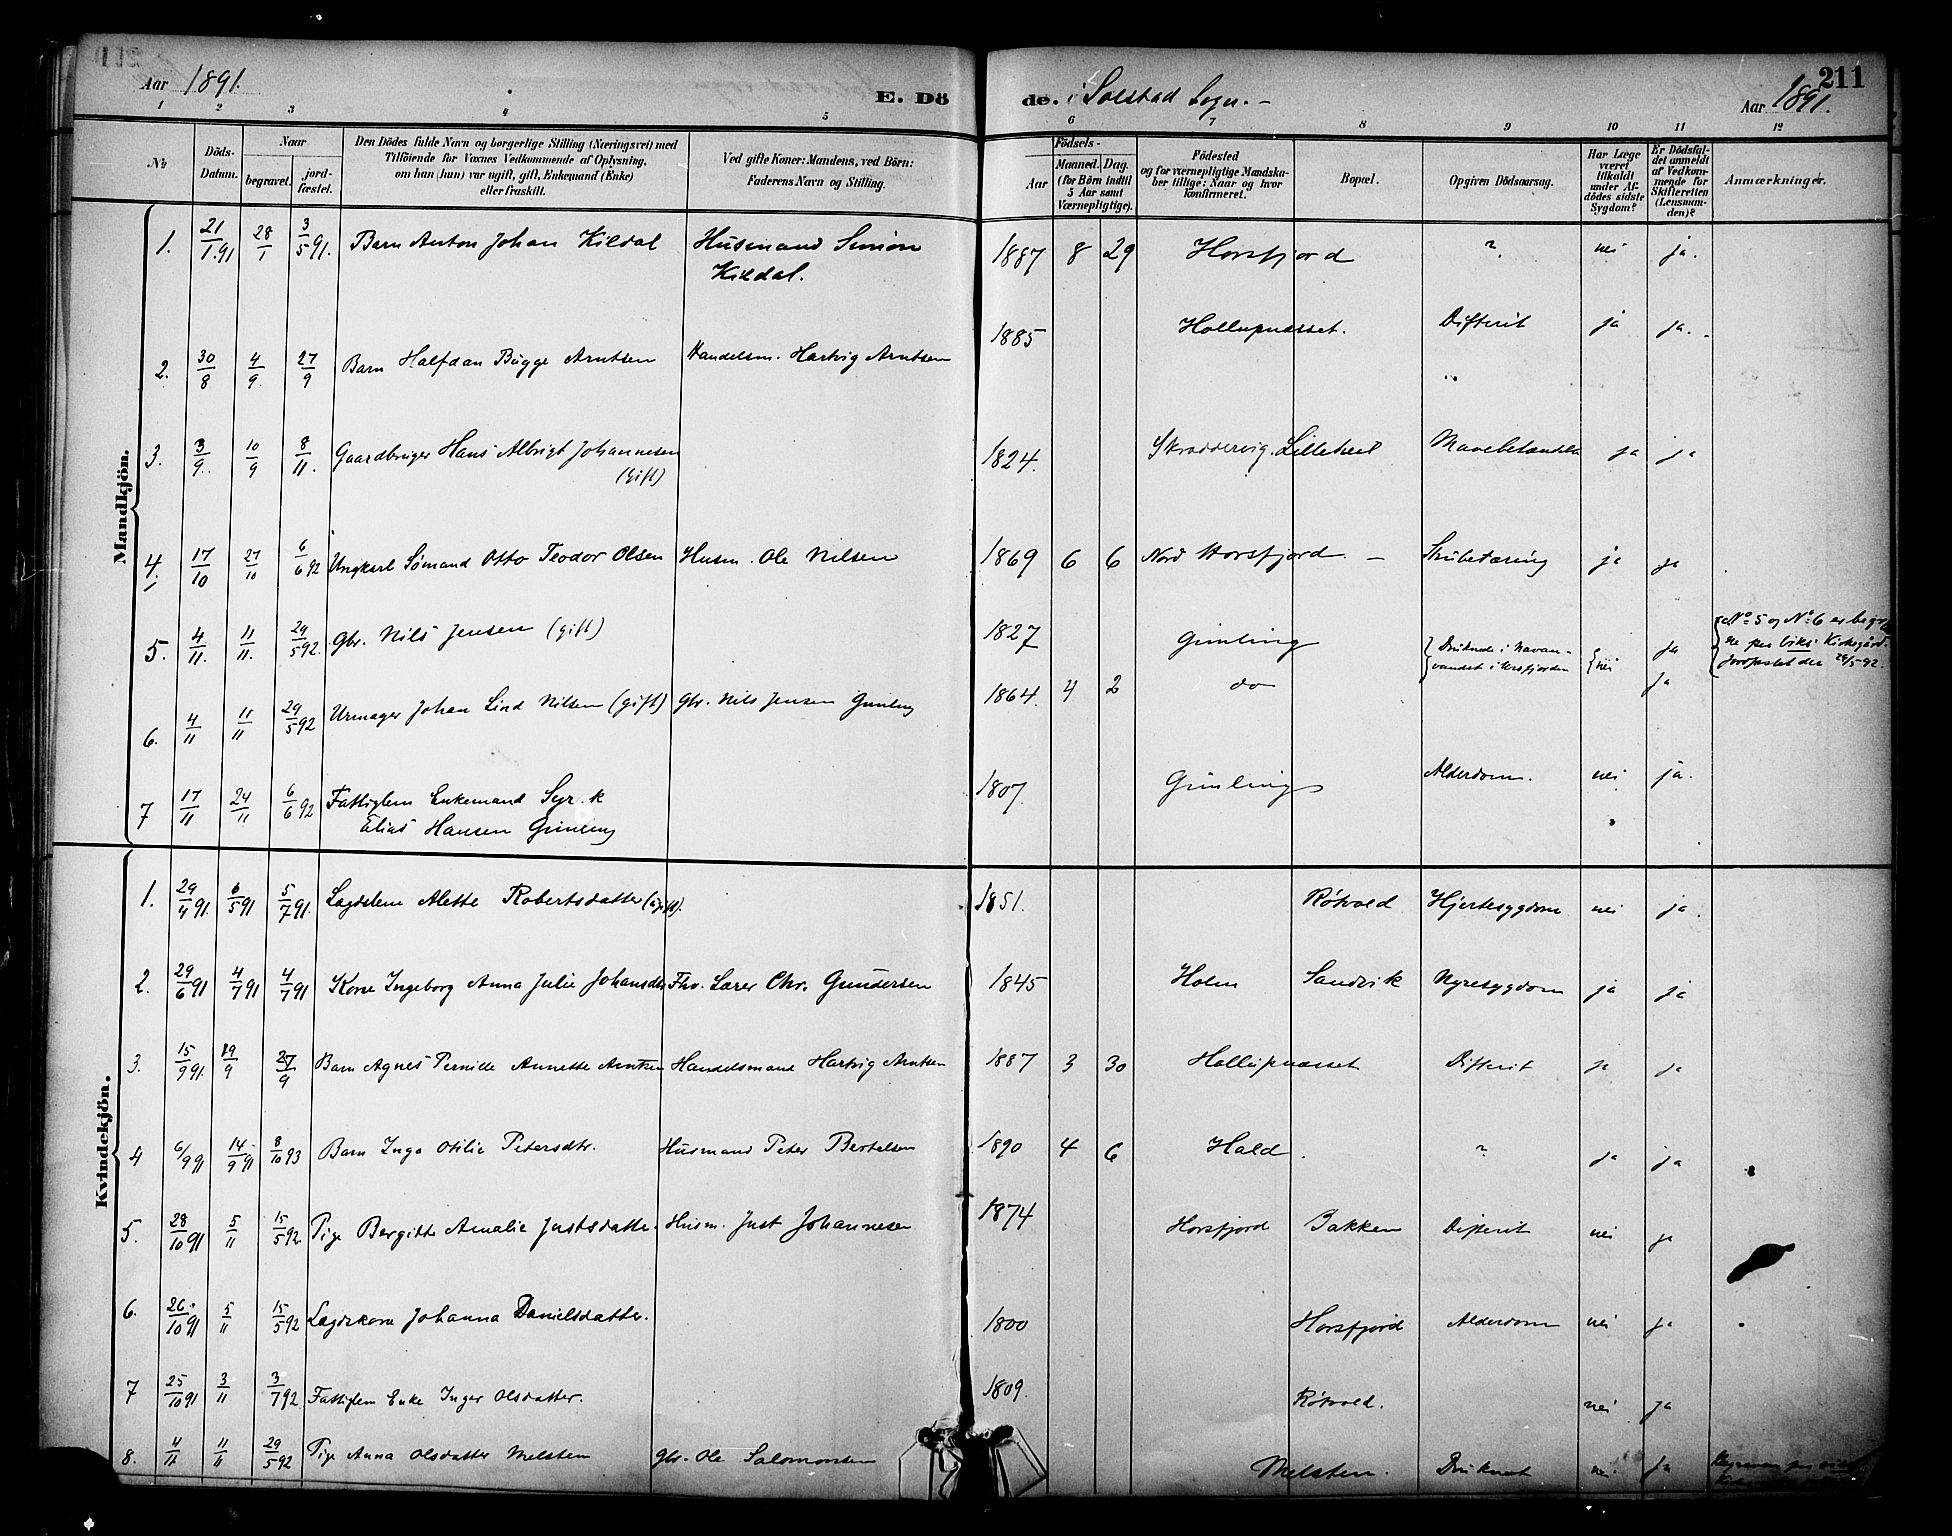 Aar 1891.
E. Dö de. i Solstad Sogn. –
Aar 1891.
211
1 2 3 4 5 6 7 8 9 10 11 12
No
Döds-Datum.
Naar
begravet.
jord-fæstet.
Den Dödes fulde Navn og borgerlige Stilling (Næringsvei) med
Tilföiende for Voxnes Vedkommende af Oplysning,
om han (hun) var ugift, gift, Enkemand (Enke)
eller fraskilt.
Ved gifte Koner: Mandens, ved Börn:
Faderens Navn og Stilling.
Födsels-
Aar
Maaned. Dag.
(for Börn indtil
5 Aar samt
Værnepligtige).
Födested
og for værnepligtige Mandska-
ber tillige: Naar og hvor
konfirmeret.
Bopæl.
Opgiven Dödsaarsag.
Har Læge
været
tilkaldt
under Af-
dödes sidste
Sygdom?
Er Dödsfal-
det anmeldt
af Vedkom-
mende for
Skifteretten
(Lensman-
den)?
Anmærkninger.
Mandkjön.
1. 21/1.91 28/1 3/5 91. Barn Anton Johan Kildal Husmand Simon Kildal. 1887 8 29 Horsfjord ? nei ja.
2. 30/8 4/9. 27/9 Barn Halfdan Bugge Arntsen Handelsm. Hartvig Arntsen 1885 Hollupnæsset. Difterit ja ja.
3. 3/9. 10/9 8/11. Gaardbruger Hans Albrigt Johannesen (gift) 1824. ja ja
4. 17/10 27/10 6/6 92 Ungkarl Sømand Otto Teodor Olsen Husm. Ole Nilsen 1869 6 6 Nord Horsfjord. – Strubetæring ja ja
5. 4/11. 11/11. 29/5 92. Gbr. Nils Jensen (gift) 1827 Gimling Druknede i nei ja No 5 og No 6 er
6. 4/11 11/11 29/5 92 Urmager Johan Lind Nilsen (gift) Gbr. Nils Jensen Gimling 1864. 4 2 do ja
7 17/11 24/11 6/6 92 Fattiglem Enkemand
Elias Hansen Gimling 1807. Gimling Alderdom. nei ja.
Kvindekjön.
1. 29/4 91. 6/5 91 5/7 91. Lægdslem Alette Robertsdatter (ugift). 1851. Røtvold Hjertesygdom nei ja.
2. 29/6 91 4/7 91 4/7 91 Kone Ingeborg Anna Julie Johansdtr Fhv. Lærer Chr. Gundersen 1845 Holm Sandvik Nyresygdom ja ja
3. 15/9 91. 19/9 27/9 Barn Agnes Pernide Annette Arntzen Handelsmand Hartvig Arntsen 1887 3 30 Hollupnæsset Difterit ja ja
4 6/9 91 14/9 91 8/10 93 Barn Inga Otilie Petersdtr. Husmand Peter Bertelsen 1890 4 6 Hald. ? ja ja
5. 28/10 91 5/11 15/5 92. Pige Bergitte Amalie Justsdatter Husm. Just Johannesen 1874 Horsfjord Bakken Difterit nei ja
6. 26/10 91 5/11 15/5 92 Lægdskone Johanna Danielsdatter. 1800 Horsfjord Alderdom nei ja
7 25/10 91 3/11 3/7 92 Fattiglem Enke Inger Olsdatter. 1809. Røtvold. nei ja
8. 4/11 11/11 29/5 92 Pige Anna Olsdatter Melsten gbr. Ole Salomonsen Melsten. Druknet nei ja